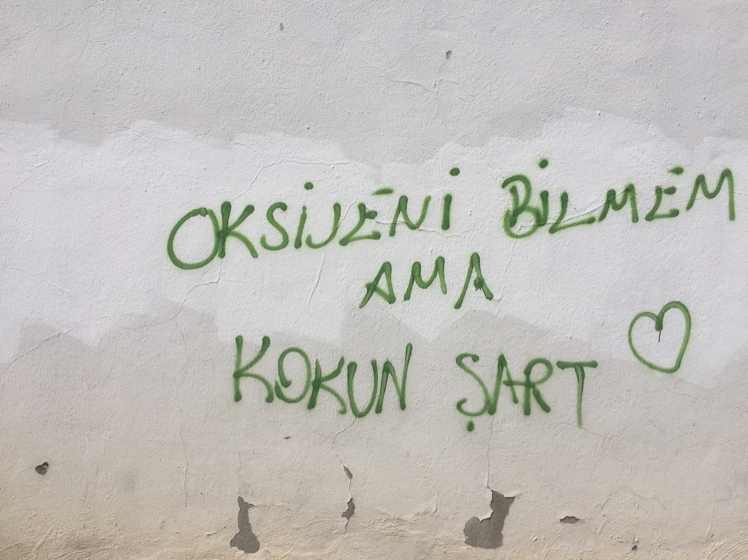 OKSİJENİ BİLMEM
AMA
KOKUN ŞART